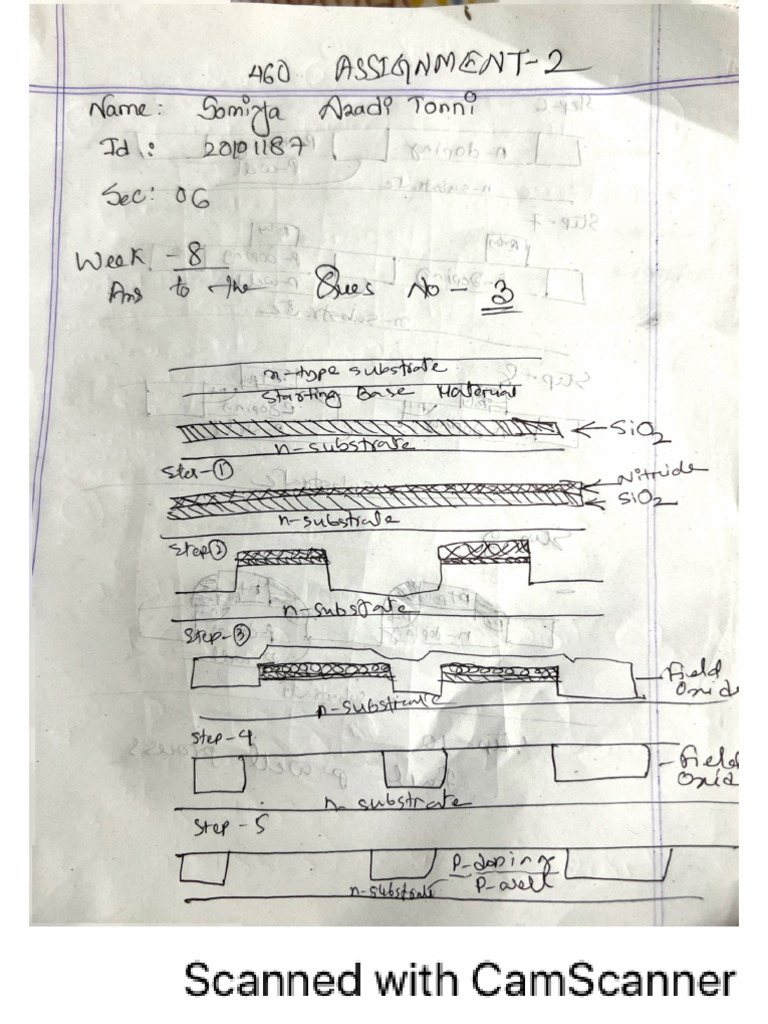 460 ASSIGNMENT-2
Name: Somiya Azadi Tonni
Id: 20101187
Sec: 06
Week - 8
Ans to the Ques No - 3
n-type substrate
Starting Base Material
← SiO2
n-substrate
Step-①
Nitride
SiO2
n-substrate
Step②
n-substrate
Step-③
Field
Oxide
n-substrate
Step-4
Field
Oxid
n-substrate
Step-5
P-doping
P-well
n-substrate
Scanned with CamScanner